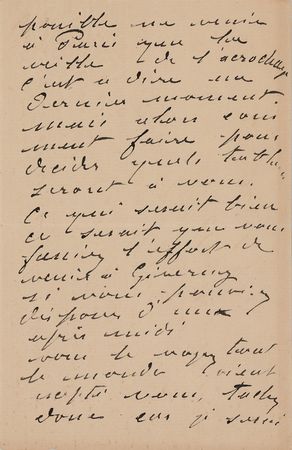 possible ne venir
à Paris que la
veille de l'accrochage
c'est à dire au
dernier moment.
mais alors com
ment faire pour
décider quels tableaux
seront à vous.
Ce qui serait bien
ce serait que vous
fassiez l'effort de
venir à Giverny
si vous pouviez
disposer d'une
après midi
vous le voyez tout
le monde vient
excepté vous, tachez
donc car je serai